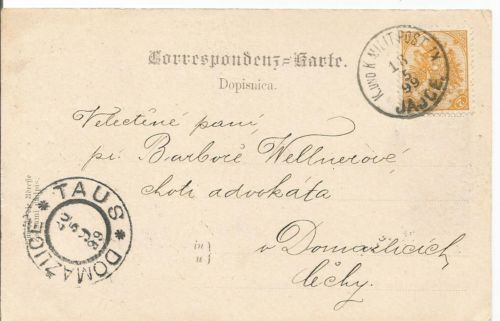 Correspondenz-Karte.
Dopisnica.
K. UND K. MILIT. POST IX
18
5
99
JAJCE.
Velectěné paní,
pí. Barboře Wellnerové
choti advokáta
in
u
v Domažlicích
Čechy.
TAUS
99
DOMAŽLICE